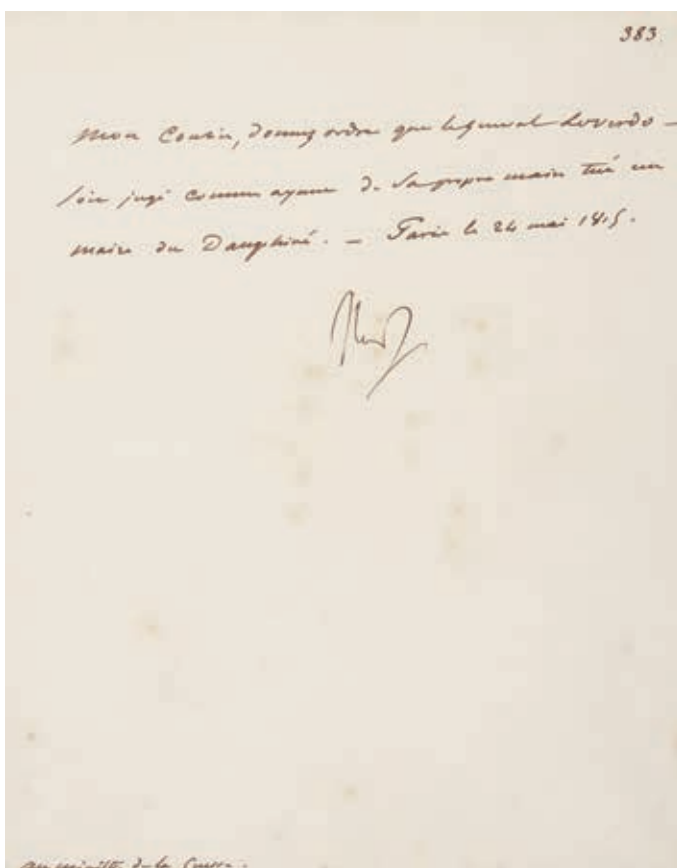 383
Mon Cousin, donnez ordre que le général Loverdo –
soit jugé comme ayant de sa propre main tué un
maire du Dauphiné. – Paris le 24 mai 1815.
au ministre de la Guerre.